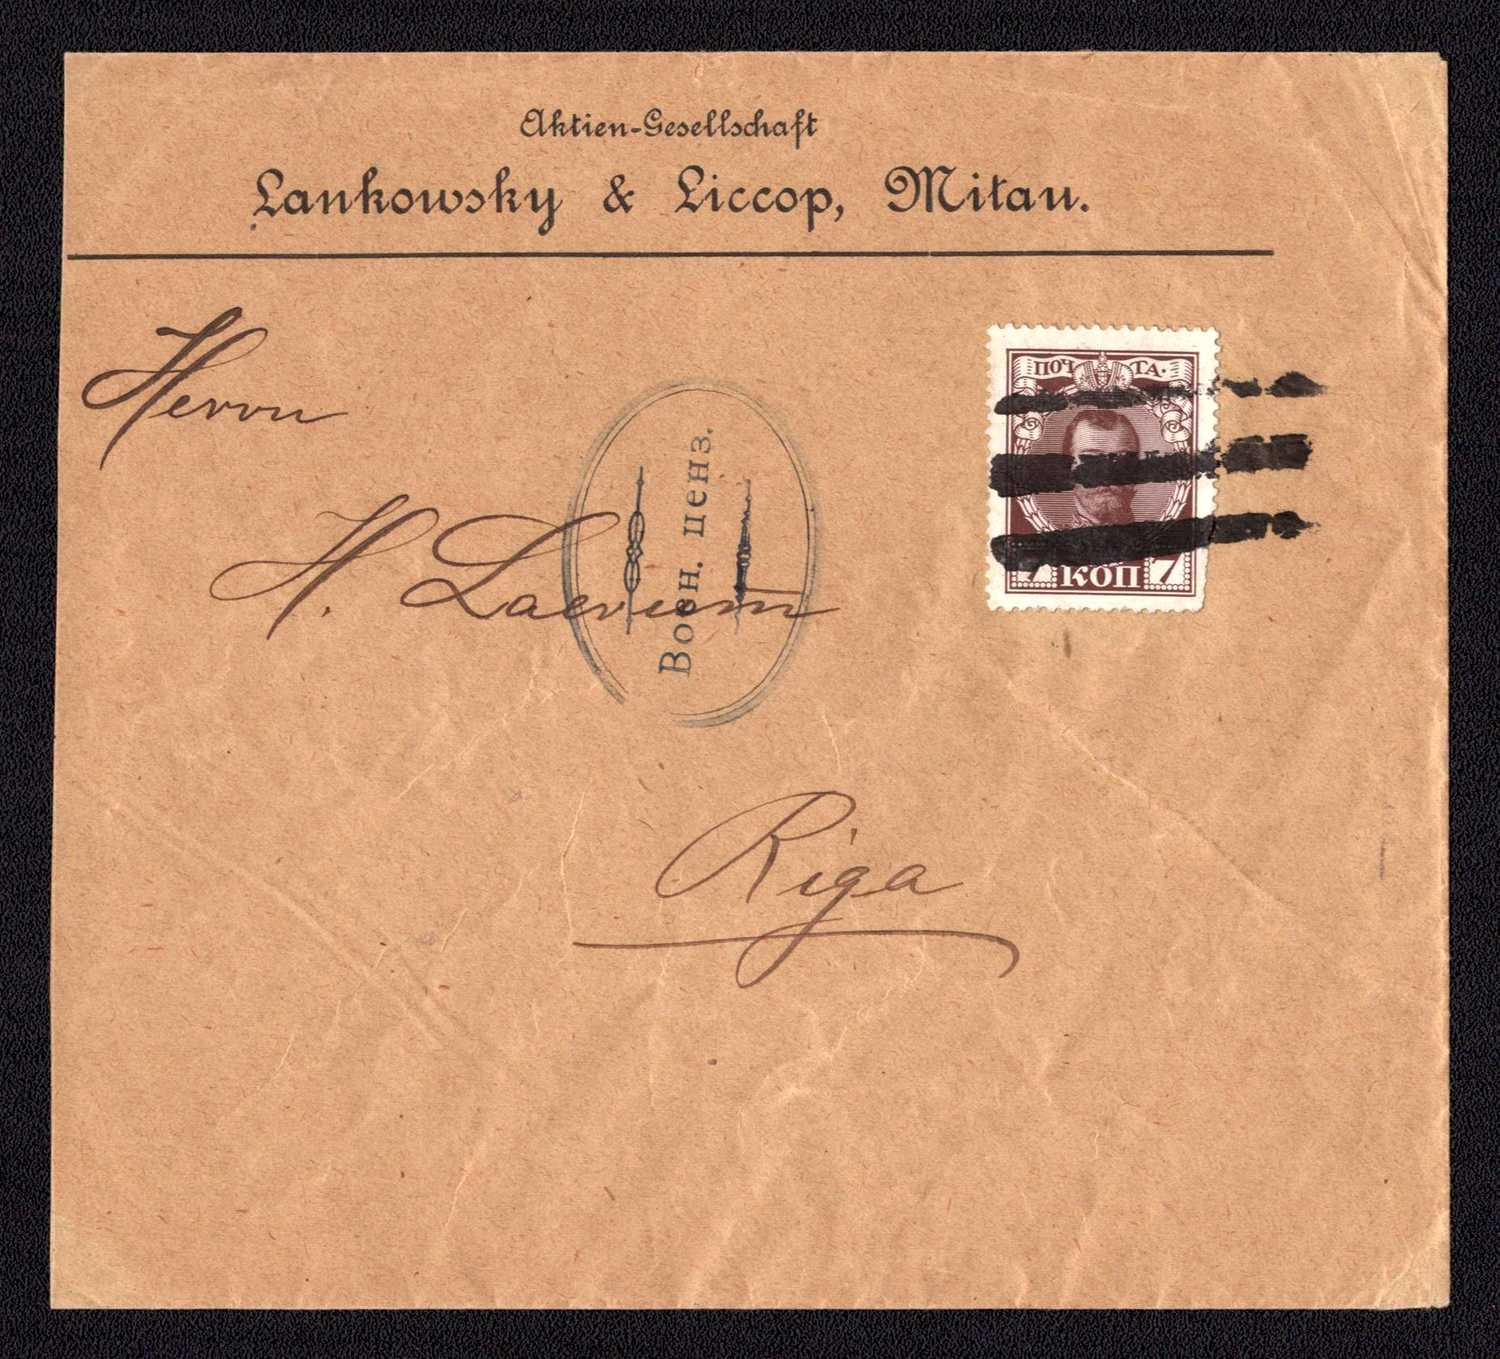 Aktien-Gesellschaft
Lankowsky & Liccop, Mitau.
Herrn
ПОЧТА.
Воен. ценз.
H.
7 КОП 7
Riga